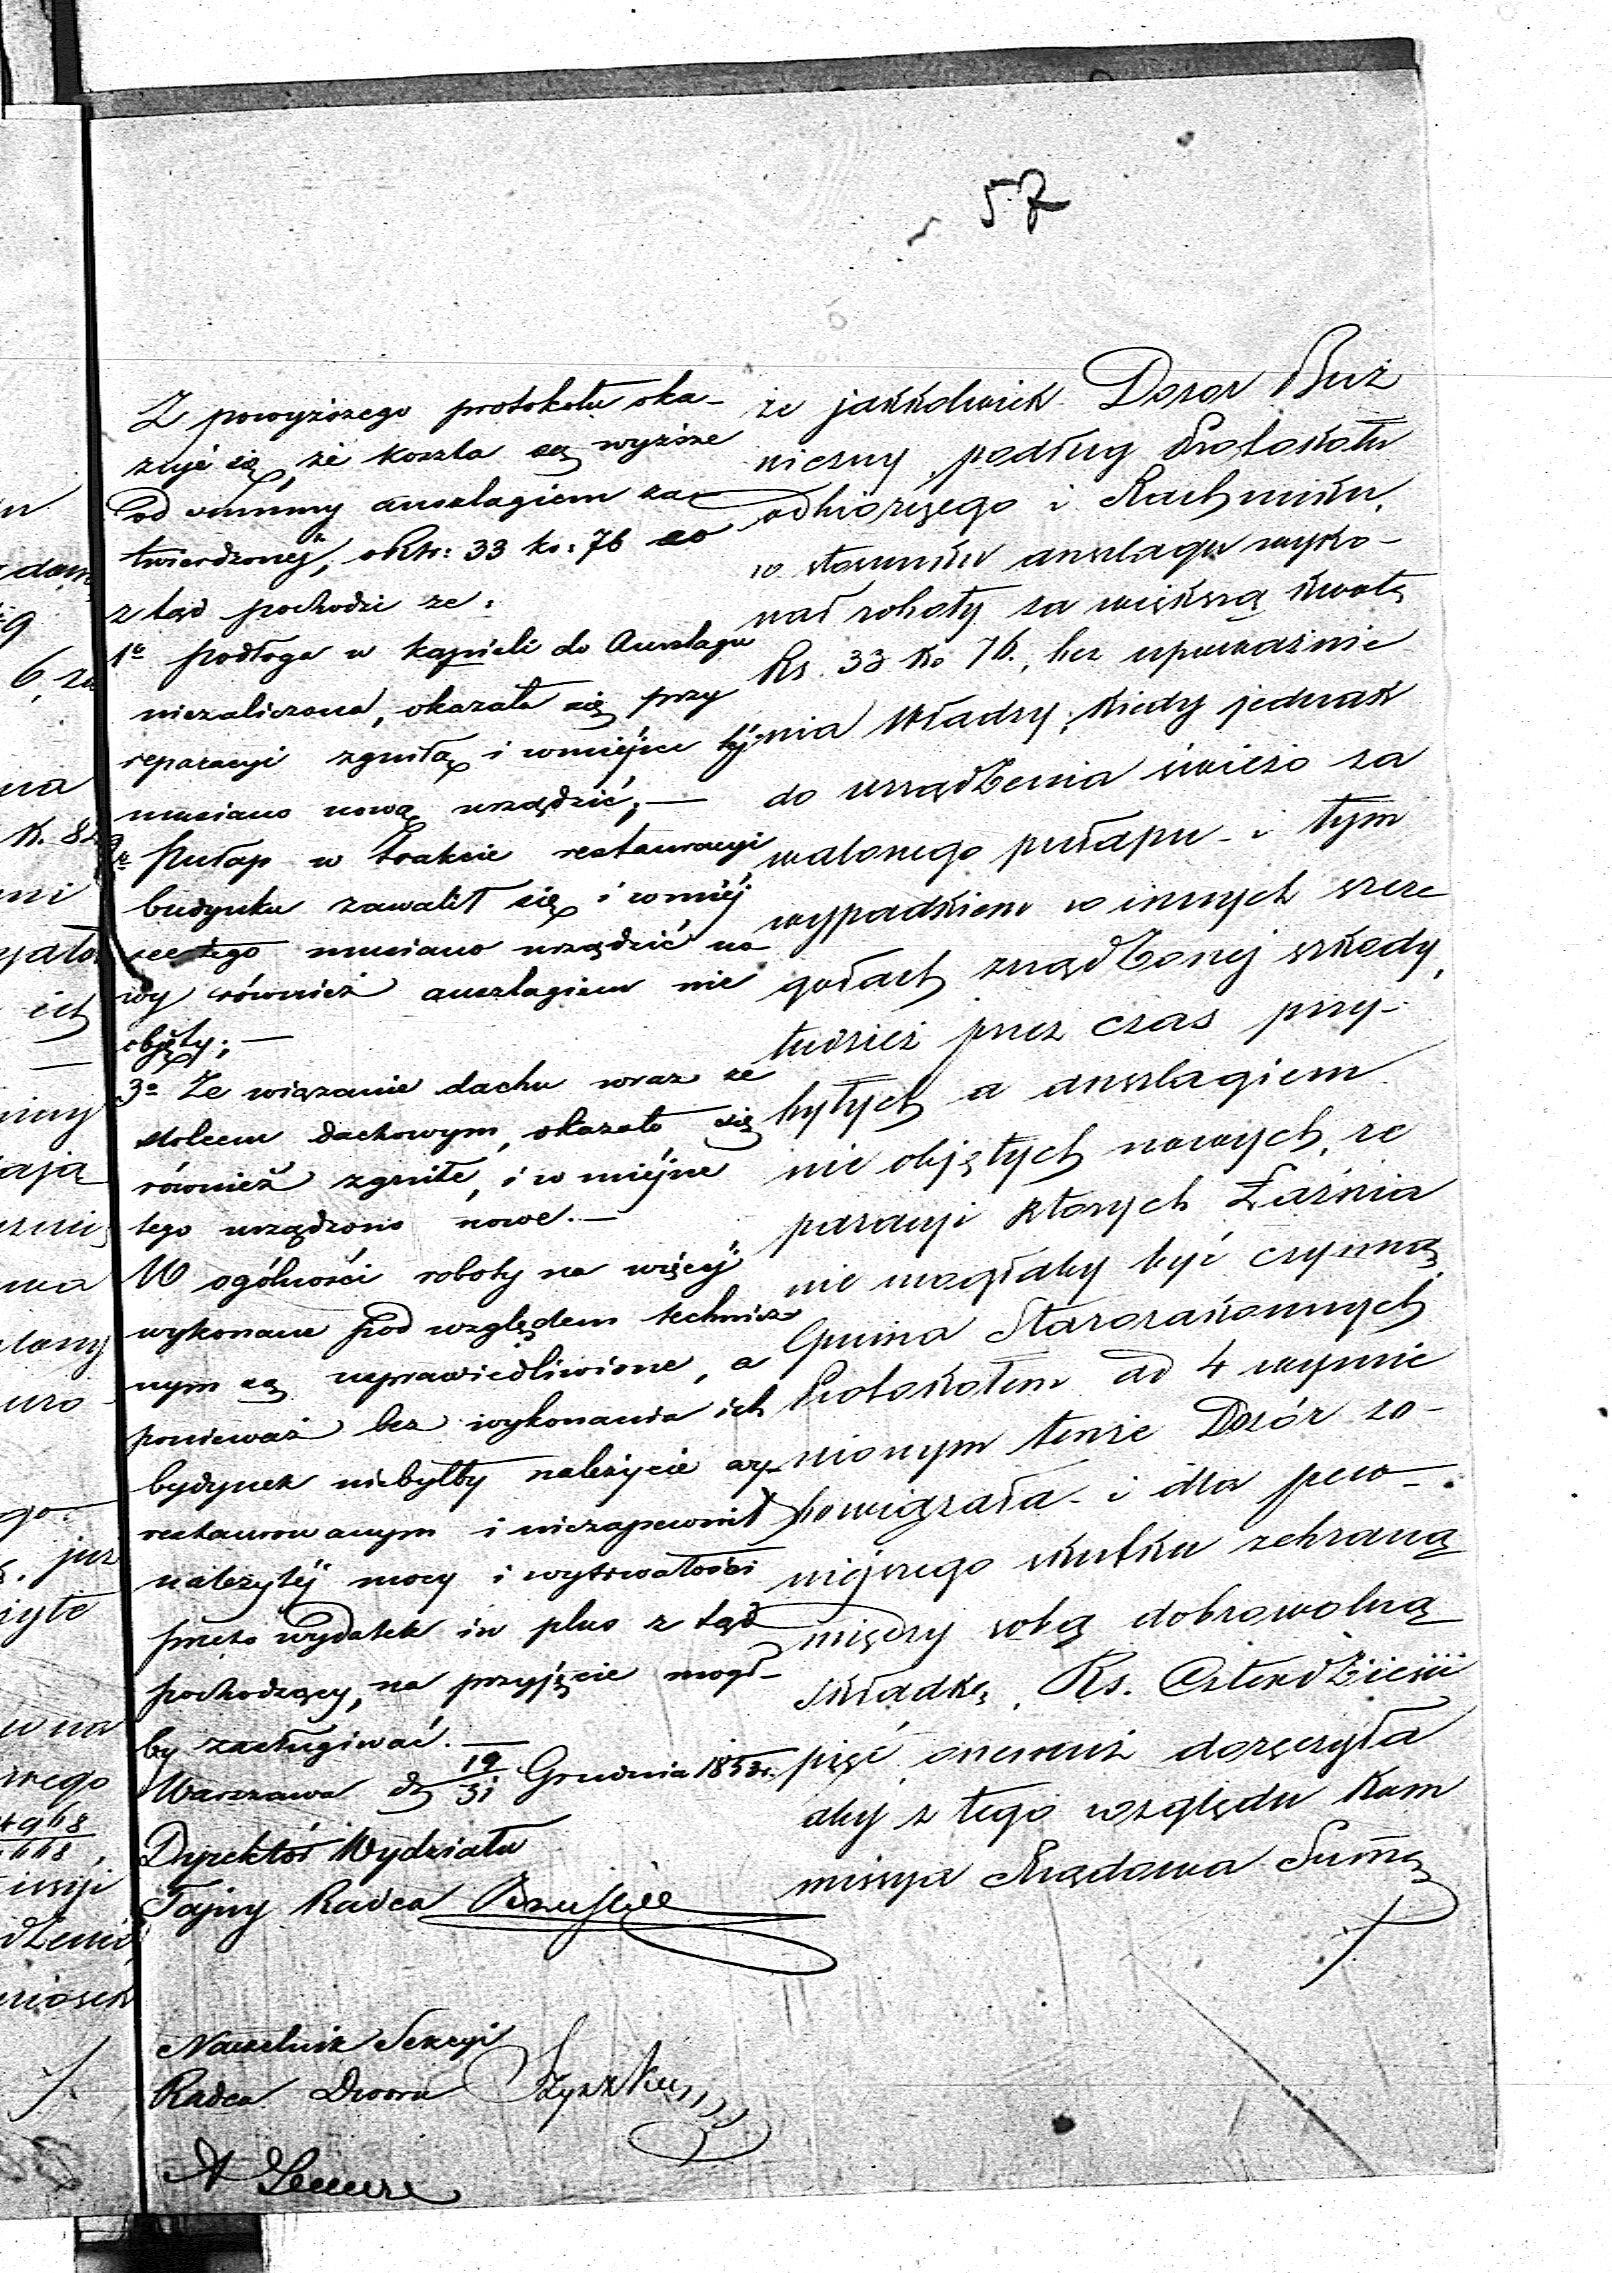 57
Z powyższego protokołu oka-
zuje się, że koszta są wyższe
od summy anszlagiem za-
twierdzonej, o Rsr: 33 ko: 76 co
ztąd pochodzi że:
1o Podłoga w kąpieli do Anszlagu
niezaliczona, okazała się przy
reparacyi zgniłą i wmiejsce téj
musiano nową urządzić; —
Pułap w trakcie restauracyi
budynku zawalił się i wmiéj
sce tego musiano urządzić no
wy również anszlagiem nie
objęty; —
3o Że wiązanie dachu wraz ze
stolcem dachowym, okazało się
również zgniłe, i w miéjsce
tego urządzono nowe. —
W ogólności roboty na więcéj
wykonane pod względem technicz
nym są usprawiedliwione, a
ponieważ bez wykonania ich
budynek niebyłby należycie wy-
restaurowanym i niezapewnił
należytéj mocy i wytrwałości
przeto wydatek in plus z tąd
pochodzący, na przyjęcie mógł-
by zasługiwać. —
Warszawa d 19/31 Grudnia 1853 r.
Dyrektor Wydziału
Tajny Radca
Naczelnik Sekcyi
Radca Dworu
że jakkolwiek Dozor Buż
niczny podług Protokołu
odbiorczego i Rachunku,
w stosunku anszlagu wyko-
nał roboty za większą kwotę
Rs. 33 ko 76., bez upoważnie
nia Władzy; kiedy jednak
do urządzenia świeżo za
walonego pułapu - i tym
wypadkiem w innych szcze
gołach zrządzonej szkody,
tudzież przez czas przy-
bytych a anszlagiem
nie objętych nowych, re
paracyi których Łaźnia
nie mogłaby być czynną,
Gmina Starozakonnych
Protokołem ad 4 wymie
nionym tenże Dozór zo-
bowiązała - i dla pew-
niejszego skutku zebraną
między sobą dobrowolną
składkę, Rs. Czterdzieści
pięć, onemuż doręczyła
aby z tego względu Kom
missya Rządowa Summę